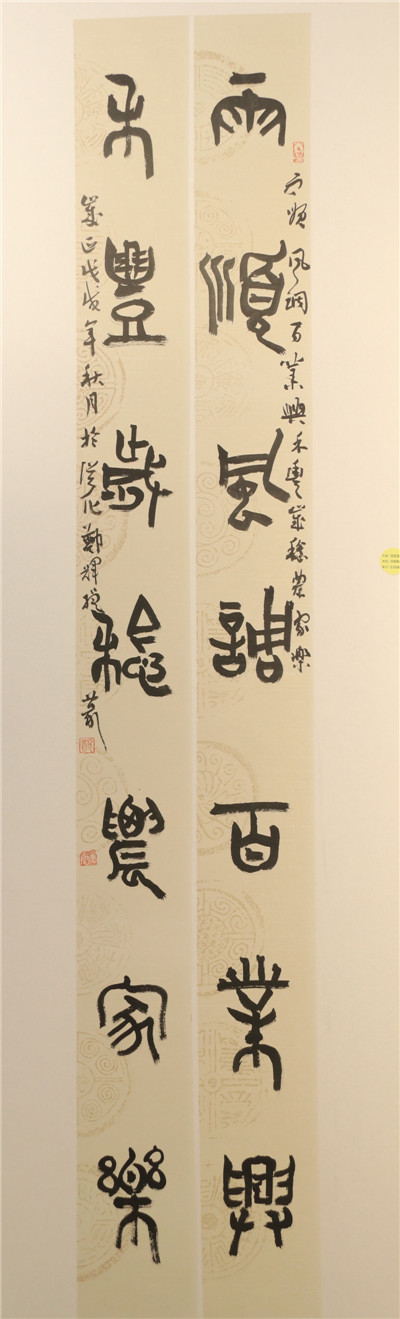 雨順風調百業興
雨順風調百業興禾豐歲稔農家樂
禾豐歲稔農家樂
歲正戊戌年秋月於從化鄭輝 篆